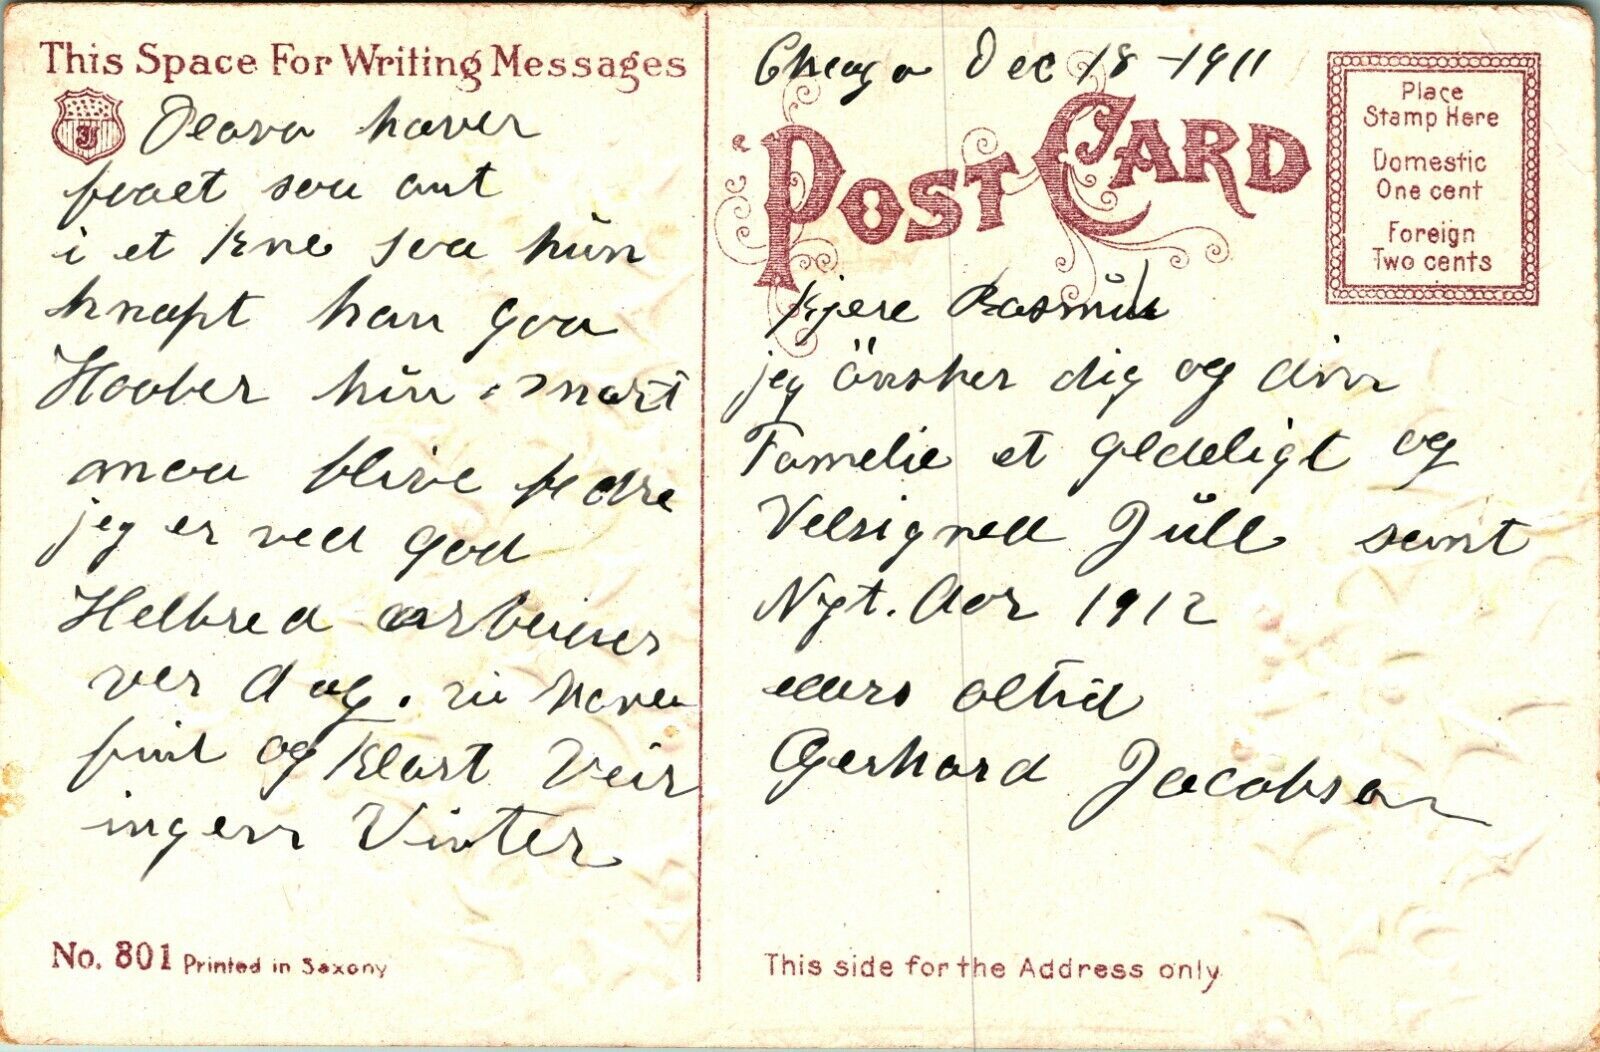 This Space For Writing Messages
Olava haver
faaet saa ont
i et Kne saa hün
knapt kan gaa
Haaber hün snart
maa blive bedre
jeg er ved god
Helbred arbeider
ver dag. vi haver
fint og Klart Veir
ingen Vinter
No. 801 Printed in Saxony
Chicago Dec 18 - 1911
POST CARD
Place
Stamp Here
Domestic
One cent
Foreign
Two cents
Kjere Rasmüs
jeg önsker dig og din
Famelie et gledeligt og
Velsigned Jüll samt
Nyt. Aar 1912
eders altid
Gerhard Jacobson
This side for the Address only